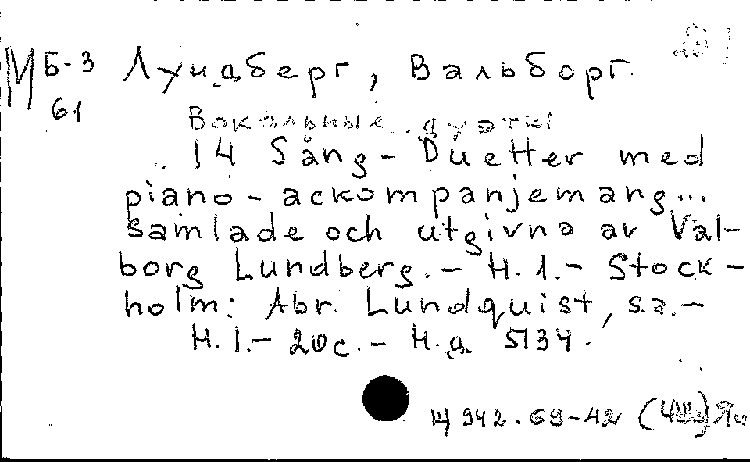 М Б-3 Лундберг, Вальборг.
61
Вокальные дуэты
14 Sång-Duetter med
piano-ackompanjemang...
samlade och utgivna av Val-
borg Lundberg.- H. 1.- Stock-
holm: Abr. Lundquist, s.a.-
H. 1.- 20 c.- Н.д. 5134.
Щ 942.69-42